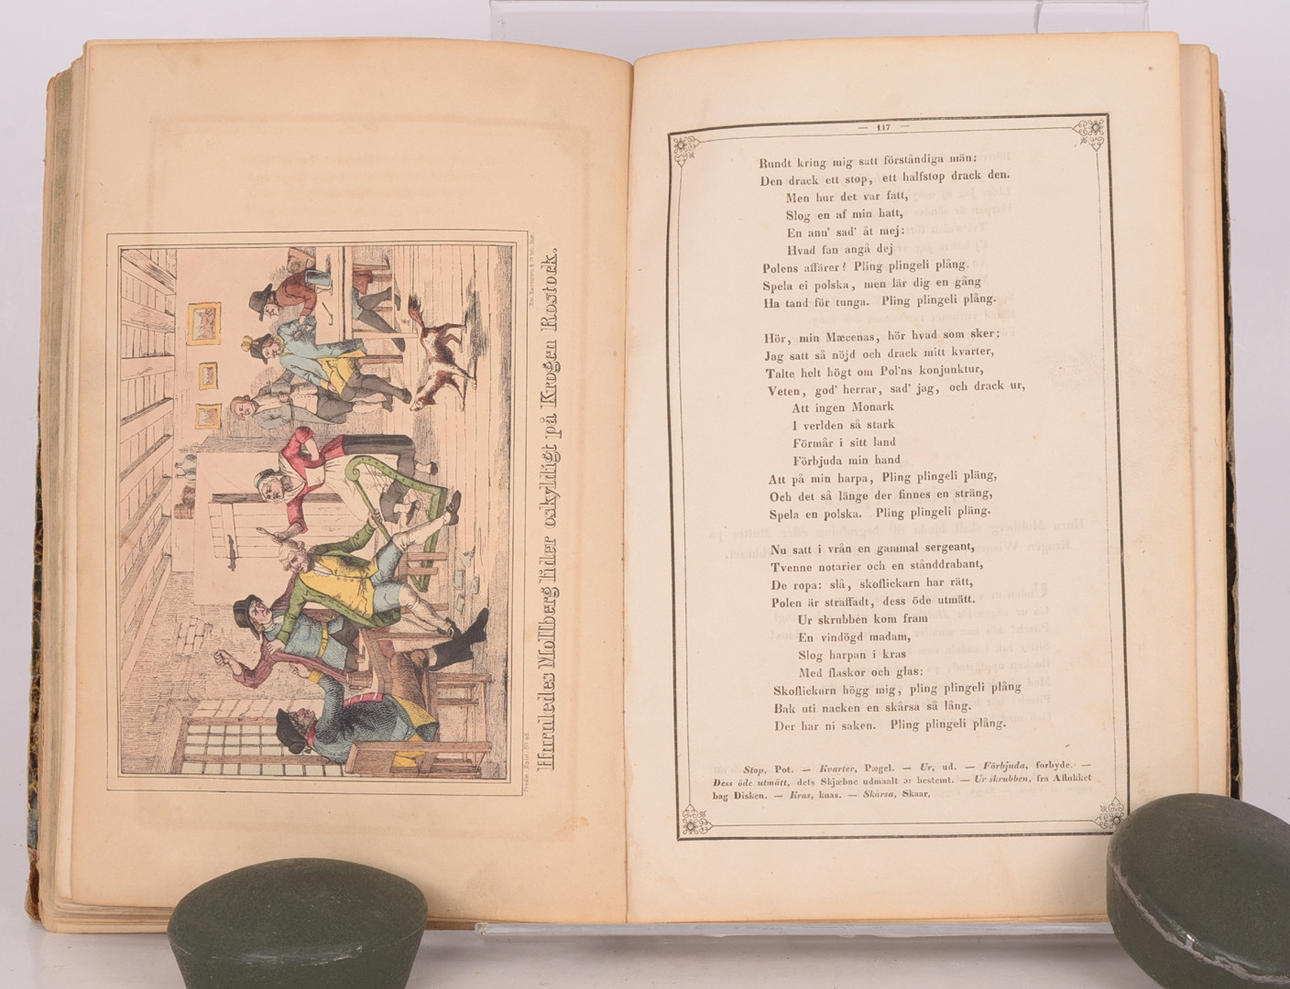 Huruledes Mollberg lider oskyldigt på Krogen Rostock.
— 117 —
Rundt kring mig satt förståndiga män:
Den drack ett stop, ett halfstop drack den.
Men hur det var fatt,
Slog en af min hatt,
En ann' sad' åt mej:
Hvad fan angå dej
Polens affärer? Pling plingeli plång.
Spela ei polska, men lär dig en gång
Ha tand för tunga. Pling plingeli plång.
Hör, min Mæcenas, hör hvad som sker:
Jag satt så nöjd och drack mitt kvarter,
Talte helt högt om Pol'ns konjunktur,
Veten, god' herrar, sad' jag, och drack ur,
Att ingen Monark
I verlden så stark
Förmår i sitt land
Förbjuda min hand
Att på min harpa, Pling plingeli plång,
Och det så länge der finnes en sträng,
Spela en polska. Pling plingeli plång.
Nu satt i vrån en gammal sergeant,
Tvenne notarier och en stånddrabant,
De ropa: slå, skoflickarn har rätt,
Polen är straffadt, dess öde utmätt.
Ur skrubben kom fram
En vindögd madam,
Slog harpan i kras
Med flaskor och glas:
Skoflickarn högg mig, pling plingeli plång
Bak uti nacken en skårsa så lång.
Der har ni saken. Pling plingeli plång.
Stop, Pot. — Kvarter, Pægel. — Ur, ud. — Förbjuda, forbyde. —
Dess öde utmätt, dets Skjæbne udmaalt ɔ: bestemt. — Ur skrubben, fra Aflukket
bag Disken. — Kras, knas. — Skårsa, Skaar,